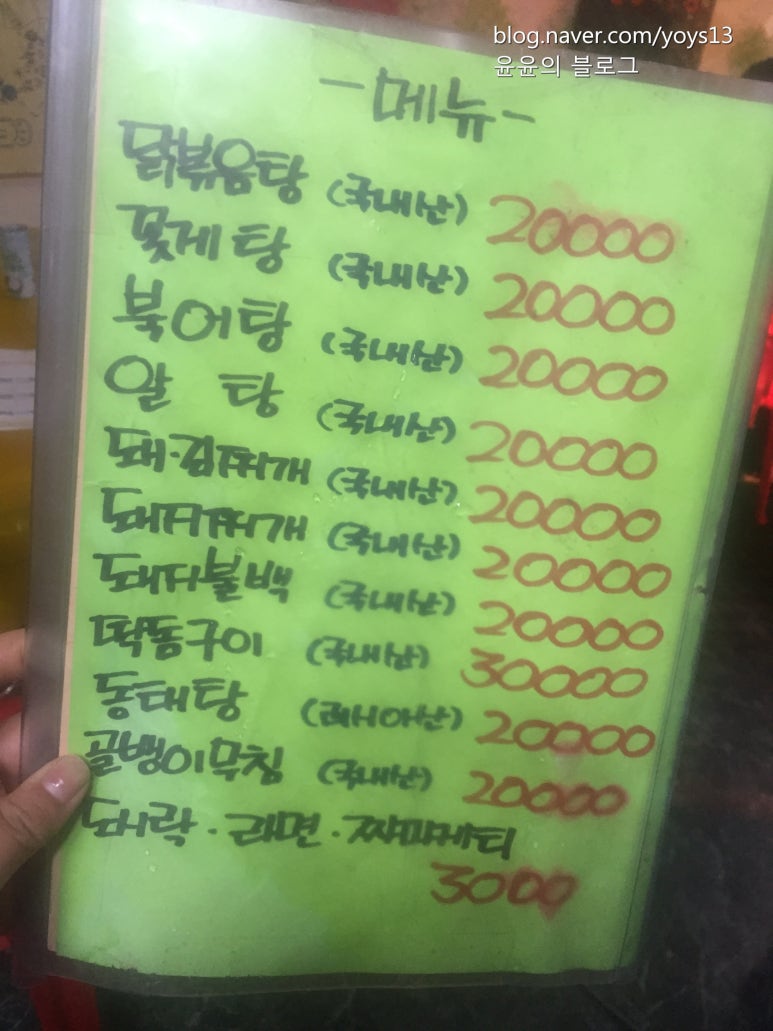 blog.naver.com/yoys13
윤윤의 블로그
-메뉴-
닭볶음탕 (국내산) 20000
꽃게탕 (국내산) 20000
북어탕 (국내산) 20000
알탕 (국내산) 20000
돼·김찌개 (국내산) 20000
돼지찌개 (국내산) 20000
돼지불백 (국내산) 20000
똑똥구이 (국내산) 30000
동태탕 (러시아산) 20000
골뱅이무침 (국내산) 20000
도시락·라면·짜파게티
3000